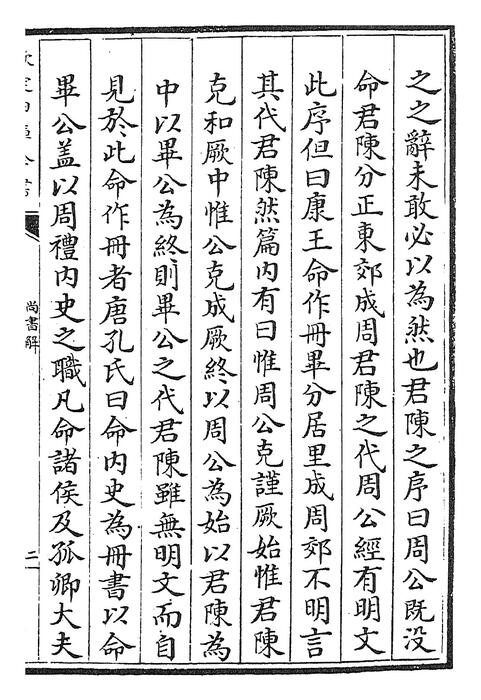 之之辭未敢必以為然也君陳之序曰周公既没
命君陳分正東郊成周君陳之代周公經有明文
此序但曰康王命作冊畢分居里成周郊不明言
其代君陳然篇内有曰惟周公克謹厥始惟君陳
克和厥中惟公克成厥終以周公為始以君陳為
中以畢公為終則畢公之代君陳雖無明文而自
見於此命作冊者唐孔氏曰命内史為冊書以命
畢公盖以周禮内史之職凡命諸侯及孤卿大夫
尚書解